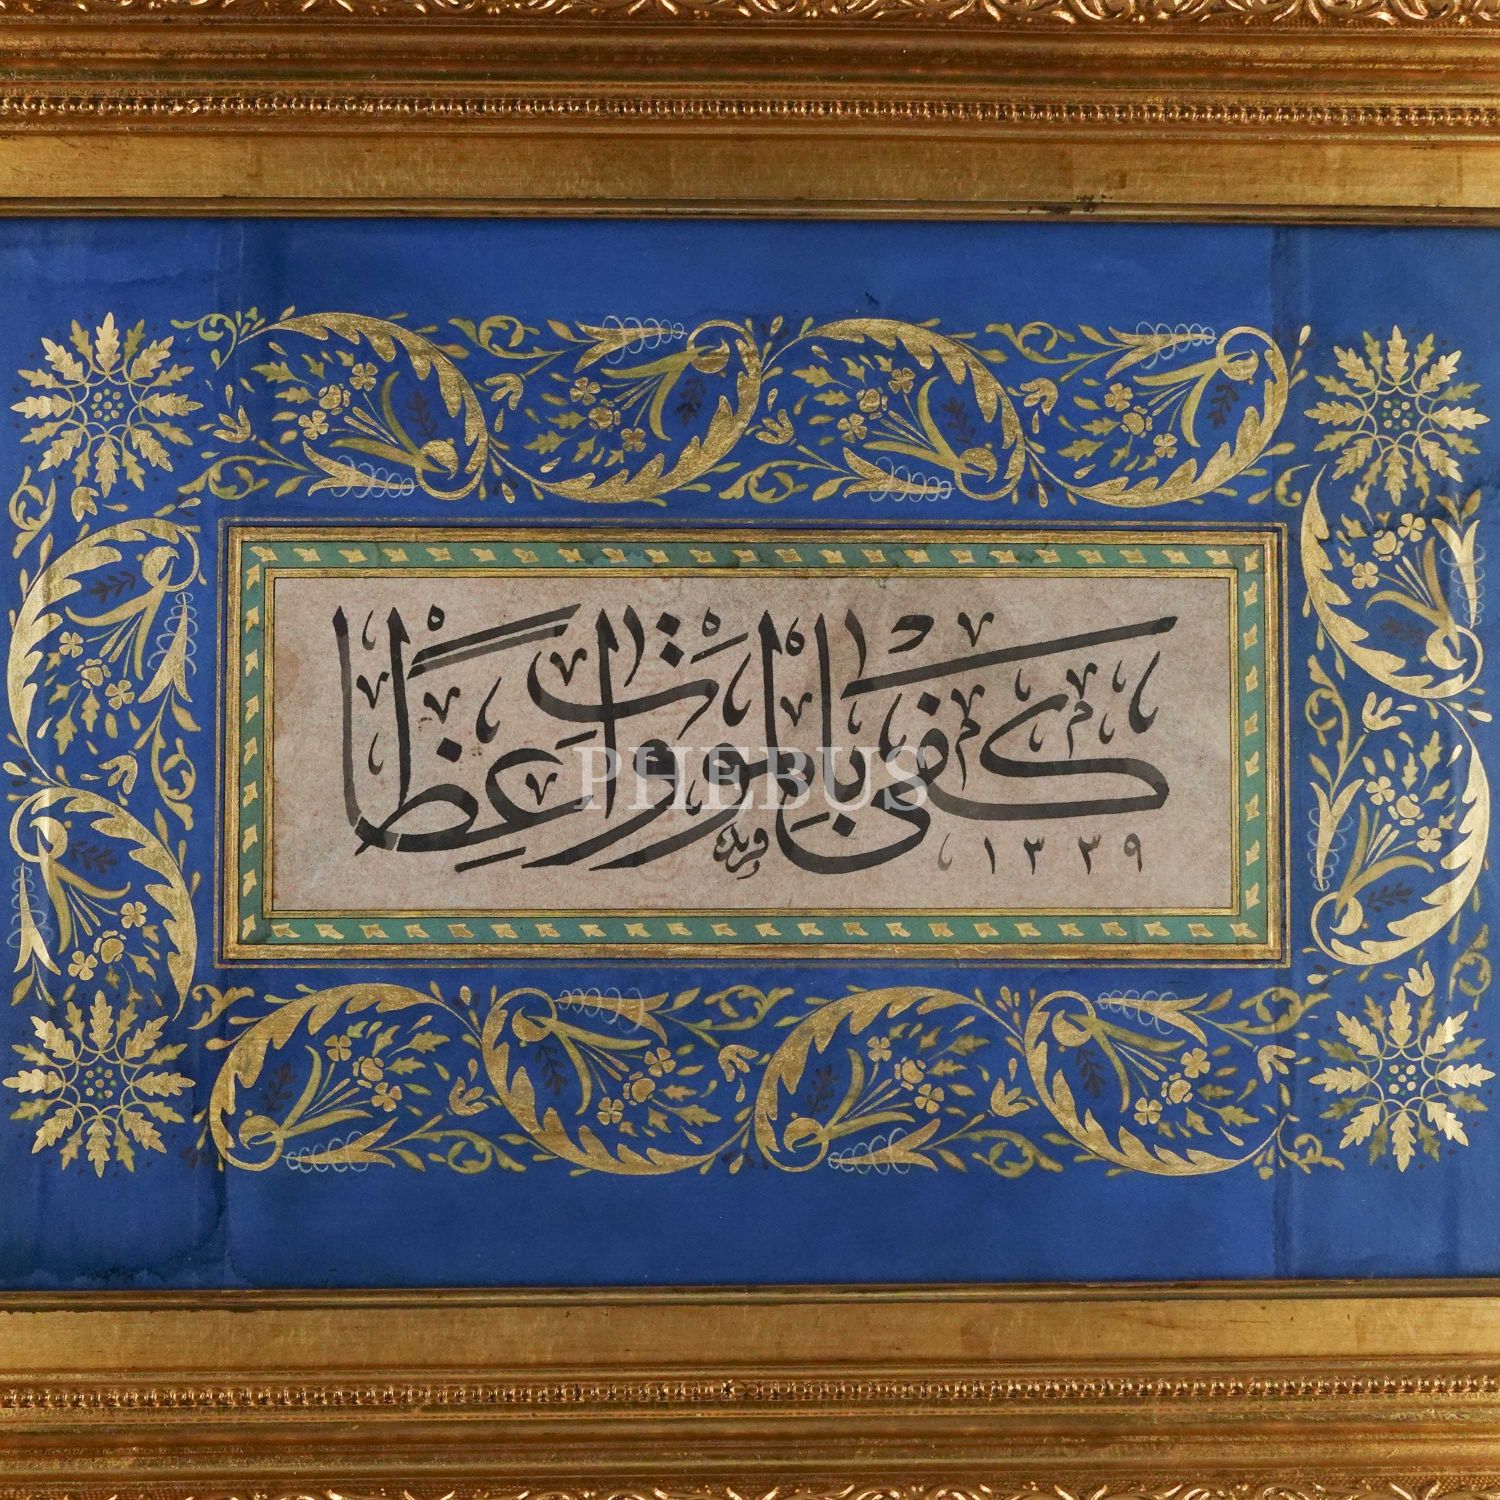 كفى بالموت واعظا
فريد
١٣٣٩
PHEBUS